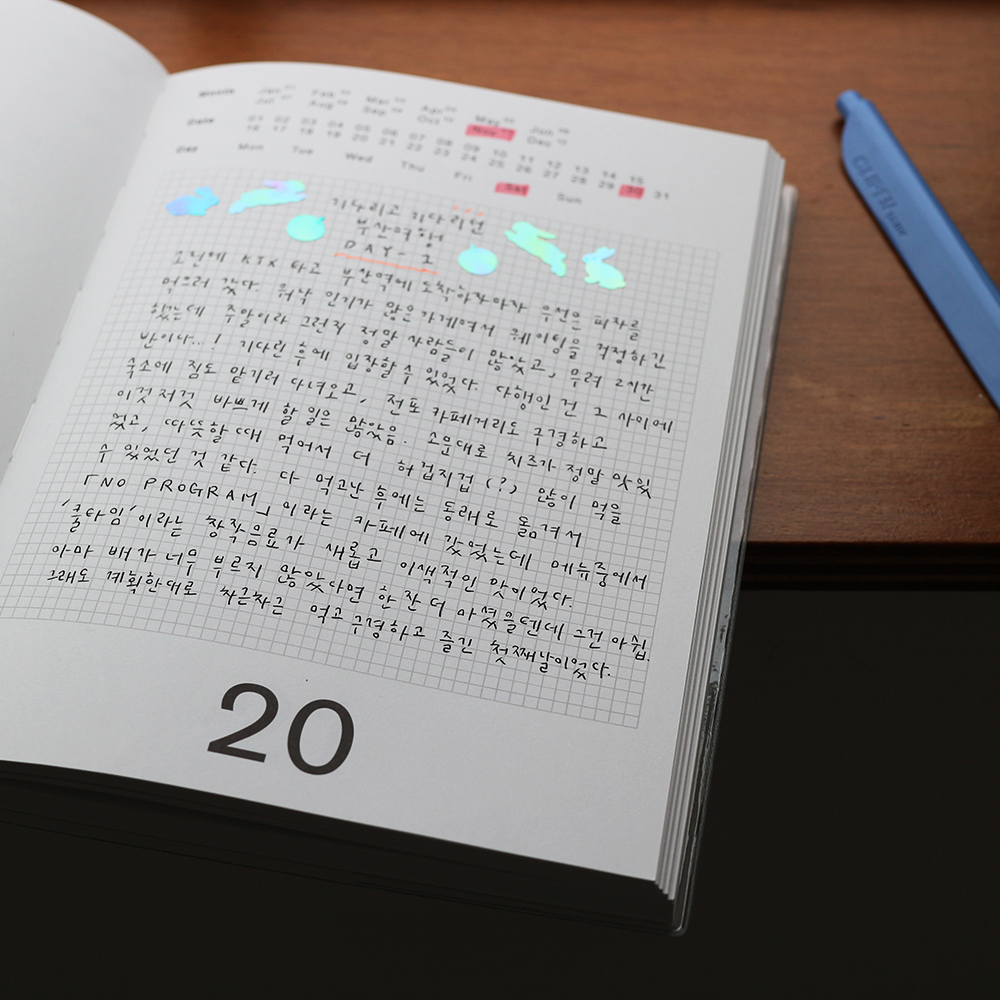 Month Jan 01 Feb 02 Mar 03 Apr 04 May 05 Jun 06
Jul 07 Aug 08 Sep 09 Oct 10 Nov 11 Dec 12
Date 01 02 03 04 05 06 07 08 09 10 11 12 13 14 15
16 17 18 19 20 21 22 23 24 25 26 27 28 29 30 31
Day Mon Tue Wed Thu Fri Sat Sun
기다리고 기다리던
부산여행
DAY-1
오전에 KTX 타고 부산역에 도착하자마자 우선은 피자를
먹으러 갔다. 워낙 인기가 많은가게여서 웨이팅을 걱정하긴
했는데 주말이라 그런지 정말 사람들이 많았고, 무려 2시간
반이나...! 기다린 후에 입장할 수 있었다. 다행인 건 그 사이에
숙소에 짐도 맡기러 다녀오고, 전포 카페거리도 구경하고
이것저것 바쁘게 할 일은 많았음. 소문대로 치즈가 정말 맛있
었고, 따뜻할 때 먹어서 더 허겁지겁(?) 많이 먹을
수 있었던 것 같다. 다 먹고난 후에는 동래로 옮겨서
「NO PROGRAM」이라는 카페에 갔었는데 메뉴중에서
'쿨타임'이라는 창작음료가 새롭고 이색적인 맛이었다.
아마 배가 너무 부르지 않았다면 한 잔 더 마셨을텐데 그건 아쉽.
그래도 계획한대로 차근차근 먹고 구경하고 즐긴 첫째날이었다.
20